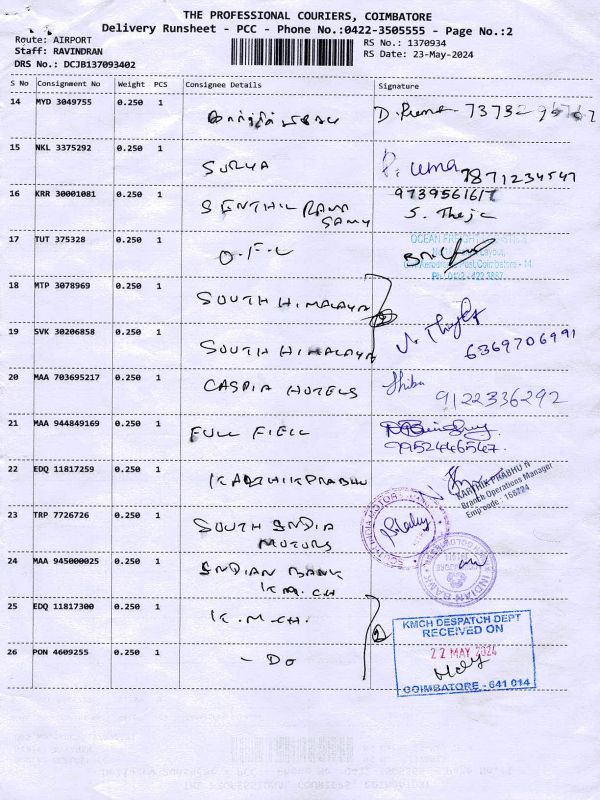 THE PROFESSIONAL COURIERS, COIMBATORE
Delivery Runsheet - PCC - Phone No.:0422-3505555 - Page No.:2
Route: AIRPORT
Staff: RAVINDRAN
DRS No.: DCJB137093402
RS No.: 1370934
RS Date: 23-May-2024
S No Consignment No Weight PCS Consignee Details Signature
14 MYD 3049755 0.250 1 D. Prema
15 NKL 3375292 0.250 1 SURYA P. uma 7871234547
16 KRR 30001081 0.250 1 SENTHIL RAMA SAMY 9739561617 S. Theja
17 TUT 375328 0.250 1 O.F.L
OCEAN FREIGHT
Coimbatore - 14.
18 MTP 3078969 0.250 1 SOUTH HIMALAYA
19 SVK 30206858 0.250 1 SOUTH HIMALAYA 6369706991
20 MAA 703695217 0.250 1 CASPIA HOTELS Shibu 9122336292
21 MAA 944849169 0.250 1 FULL FIELL 9952446547
22 EDQ 11817259 0.250 1 KARTHIKPRABHU
KARTHIK PRABHU N
Branch Operations Manager
Emp code : 158224
23 TRP 7726726 0.250 1 SOUTH INDIA MOTORS
24 MAA 945000025 0.250 1 INDIAN BANK K.M.CH
INDIAN BANK
25 EDQ 11817300 0.250 1 K.M.CH. 2
KMCH DESPATCH DEPT
RECEIVED ON
22 MAY 2024
COIMBATORE - 641 014
26 PON 4609255 0.250 1 - Do